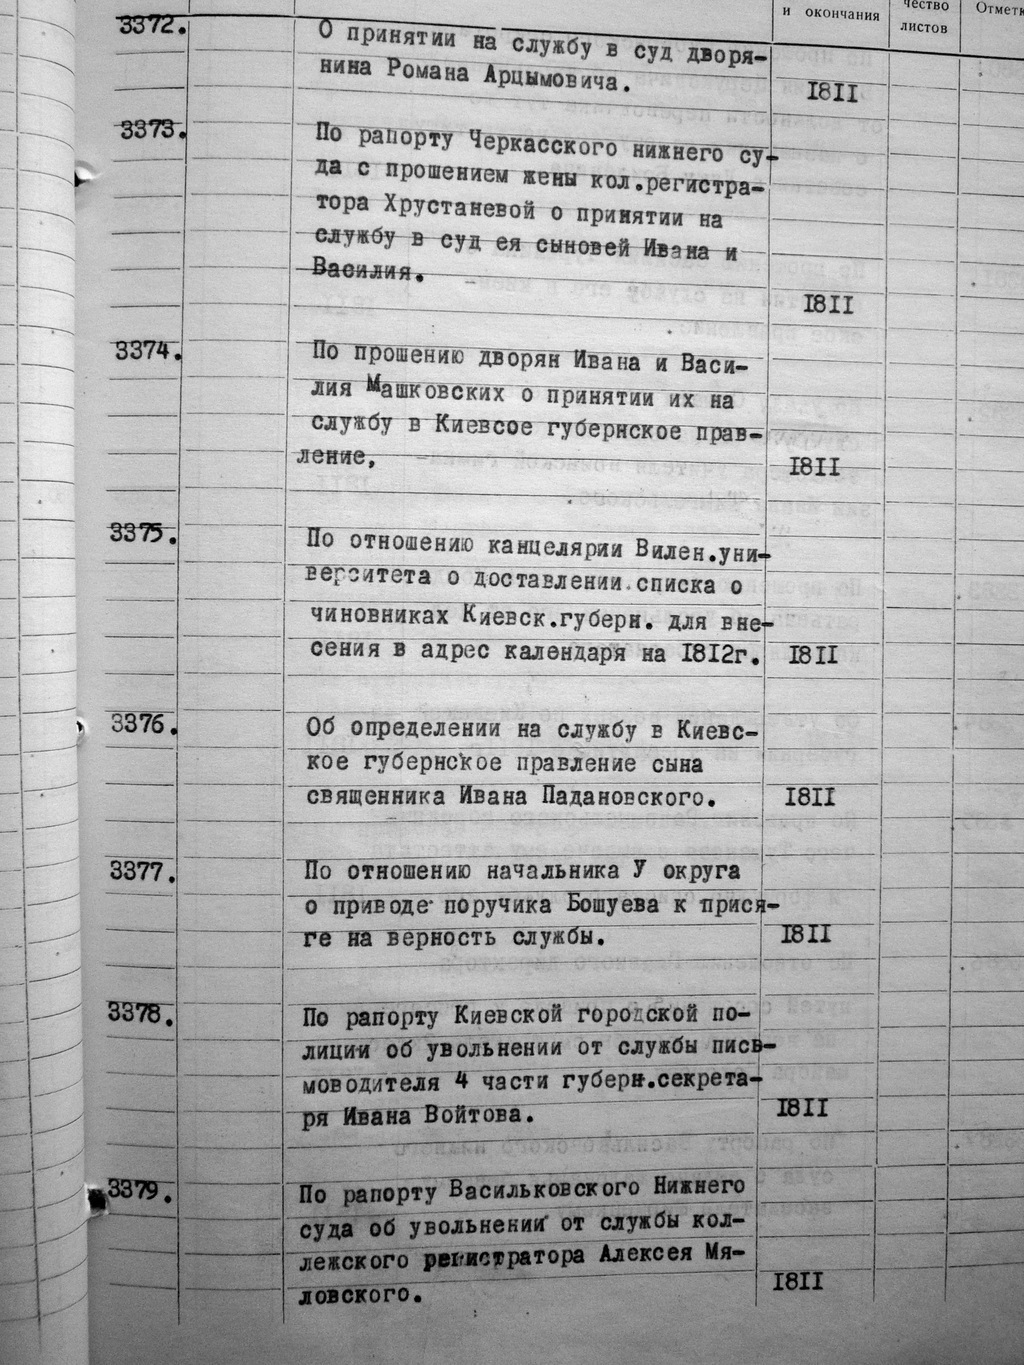 и окончания
чество
листов
Отметк
3372.
О принятии на службу в суд дворя-
нина Романа Арцымовича.
I8II
3373.
По рапорту Черкасского нижнего су-
да с прошением жены кол.регистра-
тора Хрустаневой о принятии на
службу в суд ея сыновей Ивана и
Василия.
I8II
3374.
По прошению дворян Ивана и Васи-
лия Машковских о принятии их на
службу в Киевсое губернское прав-
ление,
I8II
3375.
По отношению канцелярии Вилен.уни-
верситета о доставлении списка о
чиновниках Киевск.губерн. для вне-
сения в адрес календаря на I8I2г.
I8II
3376.
Об определении на службу в Киевс-
кое губернское правление сына
священника Ивана Падановского.
I8II
3377.
По отношению начальника У округа
о приводе поручика Бошуева к прися-
ге на верность службы.
I8II
3378.
По рапорту Киевской городской по-
лиции об увольнении от службы пись-
моводителя 4 части губерн.секрета-
ря Ивана Войтова.
I8II
3379.
По рапорту Васильковского Нижнего
суда об увольнении от службы кол-
лежского регистратора Алексея Мя-
ловского.
I8II